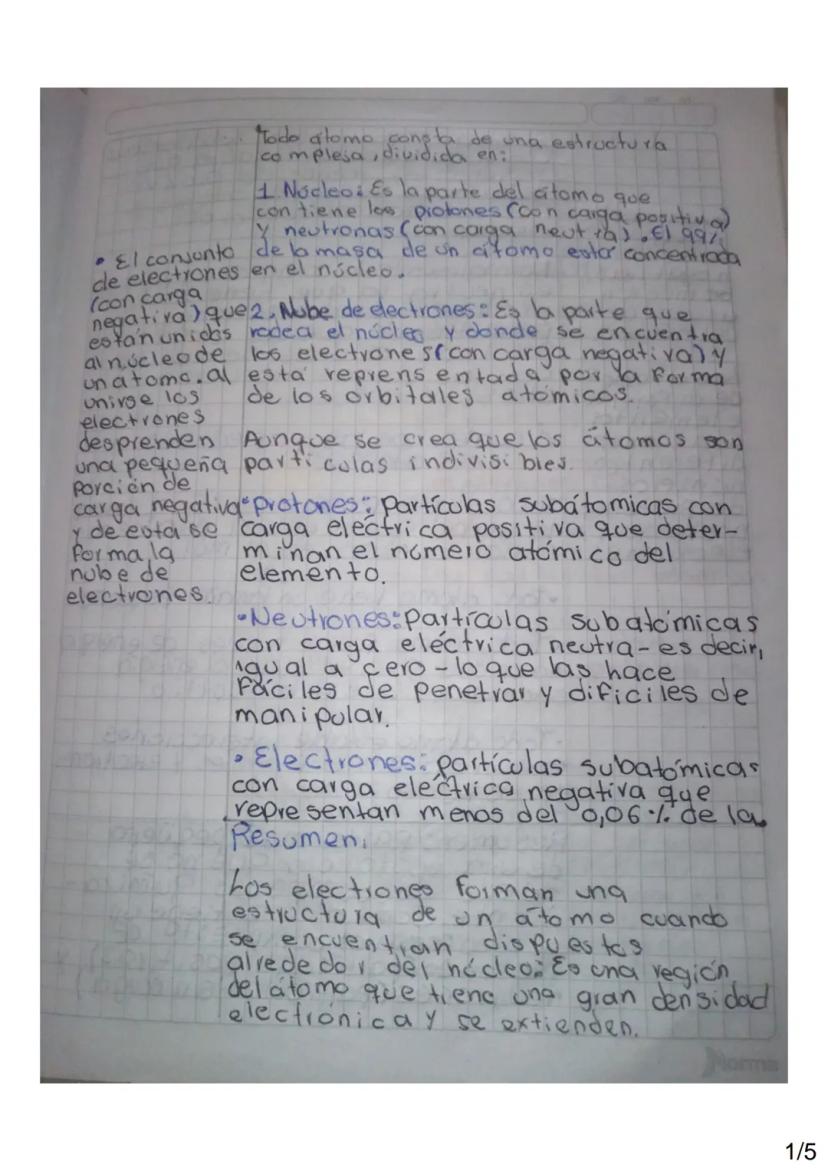 Todo átomo consta de una estructura
complesa, dividida en:
1 Núcleo: Es la parte del átomo que
contiene los protones (con carga positiva)
y neutronas (con carga neutra). El 99%
de la masa de un átomo está concentrada
en el núcleo.
• El conjunto
de electrones
(con carga
negativa) que
están unidos
al núcleo de
un atomo. al
unirse los
electrones
desprenden
una pequeña
porción de
carga negativa
y de esta se
forma la
nube de
electrones.
2. Nube de electrones: Es la parte que
rodea el núcleo y donde se encuentra
los electrones (con carga negativa) y
está reprensentada por la forma
de los orbitales atómicos.
Aunque se crea que los átomos son
partículas indivisibles.
• Protones: partículas subátomicas con
carga eléctrica positiva que deter-
minan el número atómico del
elemento.
• Neutrones: Partículas subatómicas
con carga eléctrica neutra - es decir,
igual a cero - lo que las hace
fáciles de penetrar y dificiles de
manipular.
• Electrones: partículas subatómicas
con carga eléctrica negativa que
representan menos del 0,06% de la
Resumen.
Los electrones forman una
estructura de un átomo cuando
se encuentran dispuestos
alrededor del núcleo: Es una región
del átomo que tiene una gran densidad
electrónica y se extienden.
Norma
1/5